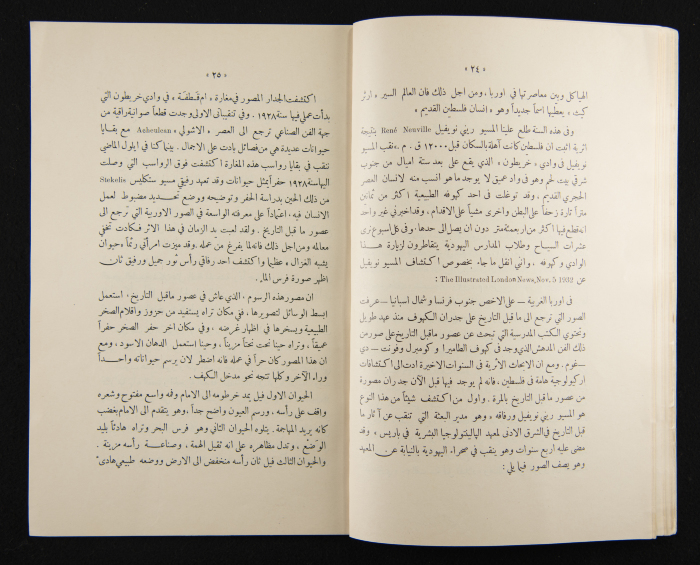 « ٢٤ »
الهياكل وبين معاصرتها في اوربا. ومن اجل ذلك فان العالم السير « ارثر
كيث » يعطيها اسماً جديداً وهو « انسان فلسطين القديم »
وفي هذه السنة طلع علينا المسيو ريني نوفيل René Neuville بنتيجة
اثرية اثبت ان فلسطين كانت آهلة بالسكان قبل ١٢٠٠٠ ق . م . نقب المسيو
نوفيل في وادي « خريطون » الذي يقع على بعد ستة اميال من جنوب
شرقي بيت لحم وهو في واد عميق لا يوجد ما هو انسب منه لانسان العصر
الحجري القديم . وقد توغلت في احد كهوفه الطبيعية اكثر من ثمانين
متراً تارة زحفاً على البطن واخرى مشياً على الاقدام . وقد اخبرني غير واحد
انه قطع فيها اكثر من اربعمئة متر دون ان يصل الى حدها . وفي كل اسبوع ترى
عشرات السياح وطلاب المدارس اليهودية يتقاطرون لزيارة هذا
الوادي وكهوفه . وانني انقل ما جاء بخصوص اكتشاف المسيو نوفيل
عن The Illustrated London News, Nov. 5 1932 :
في اوربا الغربية — على الاخص جنوب فرنسا وشمال اسبانيا — عرفت
الصور التي ترجع الى ما قبل التاريخ على جدران الكهوف منذ عهد طويل
وتحتوي الكتب المدرسية التي تبحث عن عصور ما قبل التاريخ على صور من
ذلك الفن المدهش الذي وجد في كهوف الطاميرا وكومبرل وفونت — دي
— غوم . ومع ان الابحاث الاثرية في السنوات الاخيرة ادت الى اكتشافات
اركيولوجية هامة في فلسطين ، فانه لم يوجد فيها قبل الآن جدران مصورة
من عصور ما قبل التاريخ بالمرة . واول من اكتشف شيئاً من هذا النوع
هو المسيو ريني نوفيل ورفاقه ، وهو مدير البعثة التي تنقب عن آثار ما
قبل التاريخ في الشرق الادنى لمعهد الپاليئتولوجيا البشرية في باريس ، وقد
مضى عليه اربع سنوات وهو ينقب في صحراء اليهودية بالنيابة عن المعهد
وهو يصف الصور فيما يلي :
« ٢٥ »
اكتشفت الجدار المصور في مغارة « ام قطفة » في وادي خريطون التي
بدأت عملي فيها سنة ١٩٢٨ . وفي تنقيباتي الاولى وجدت قطعاً صوانية راقية من
جهة الفن الصناعي ترجع الى العصر « الاشولي » Acheulean مع بقايا
حيوانات عديدة هي من فصائل بادت على الاجمال . بينما كنا في ايلول الماضي
ننقب في بقايا رواسب هذه المغارة اكتشفت فوق الرواسب التي وصلت
اليها سنة ١٩٢٨ حفراً يمثل حيوانات وقد تعهد رفيقي مسيو ستكليس Stekelis
من ذلك الحين بدراسة الحفر وتوضيحه ووضع تحديد مضبوط لعمل
الانسان فيه . اعتماداً على معرفته الواسعة في الصور الاوربية التي ترجع الى
عصور ما قبل التاريخ . ولقد لعبت يد الزمان في هذا الاثر فكادت تخفي
معالمه ومن اجل ذلك فانه لما يفرغ من عمله . وقد ميزت امرأتي رئماً « حيوان
يشبه الغزال » عظيماً واكتشف احد رفاقي رأس ثور جميل ورفيق ثان
اظهر صورة فرس الماء .
ان مصور هذه الرسوم ، الذي عاش في عصور ما قبل التاريخ ، استعمل
ابسط الوسائل لتصويرها ، ففي مكان تراه يستفيد من حزوز واقلام الصخر
الطبيعية ويسخرها في اظهار غرضه ، وفي مكان آخر حفر الصخر حفراً
عميقاً ، وتراه حيناً نحت نحتاً مزيناً ، وحيناً استعمل الدهان الاسود . ومع
ان هذا المصور كان حراً في عمله فانه اضطر لان يرسم حيواناته واحداً
وراء الآخر وكلها تتجه نحو مدخل الكهف .
الحيوان الاول فيل يمد خرطومه الى الامام وفمه واسع مفتوح وشعره
واقف على رأسه ، ورسم العيون واضح جداً ، وهو يتقدم الى الامام بغضب
كانه يريد المهاجمة . يتلوه الحيوان الثاني وهو فرس البحر وتراه هادئاً بليد
الوضع ، وتدل مظاهره على انه ثقيل الهمة ، وصناعة رأسه مزينة .
والحيوان الثالث فيل ثان رأسه منخفض الى الارض ووضعه طبيعي هادئ